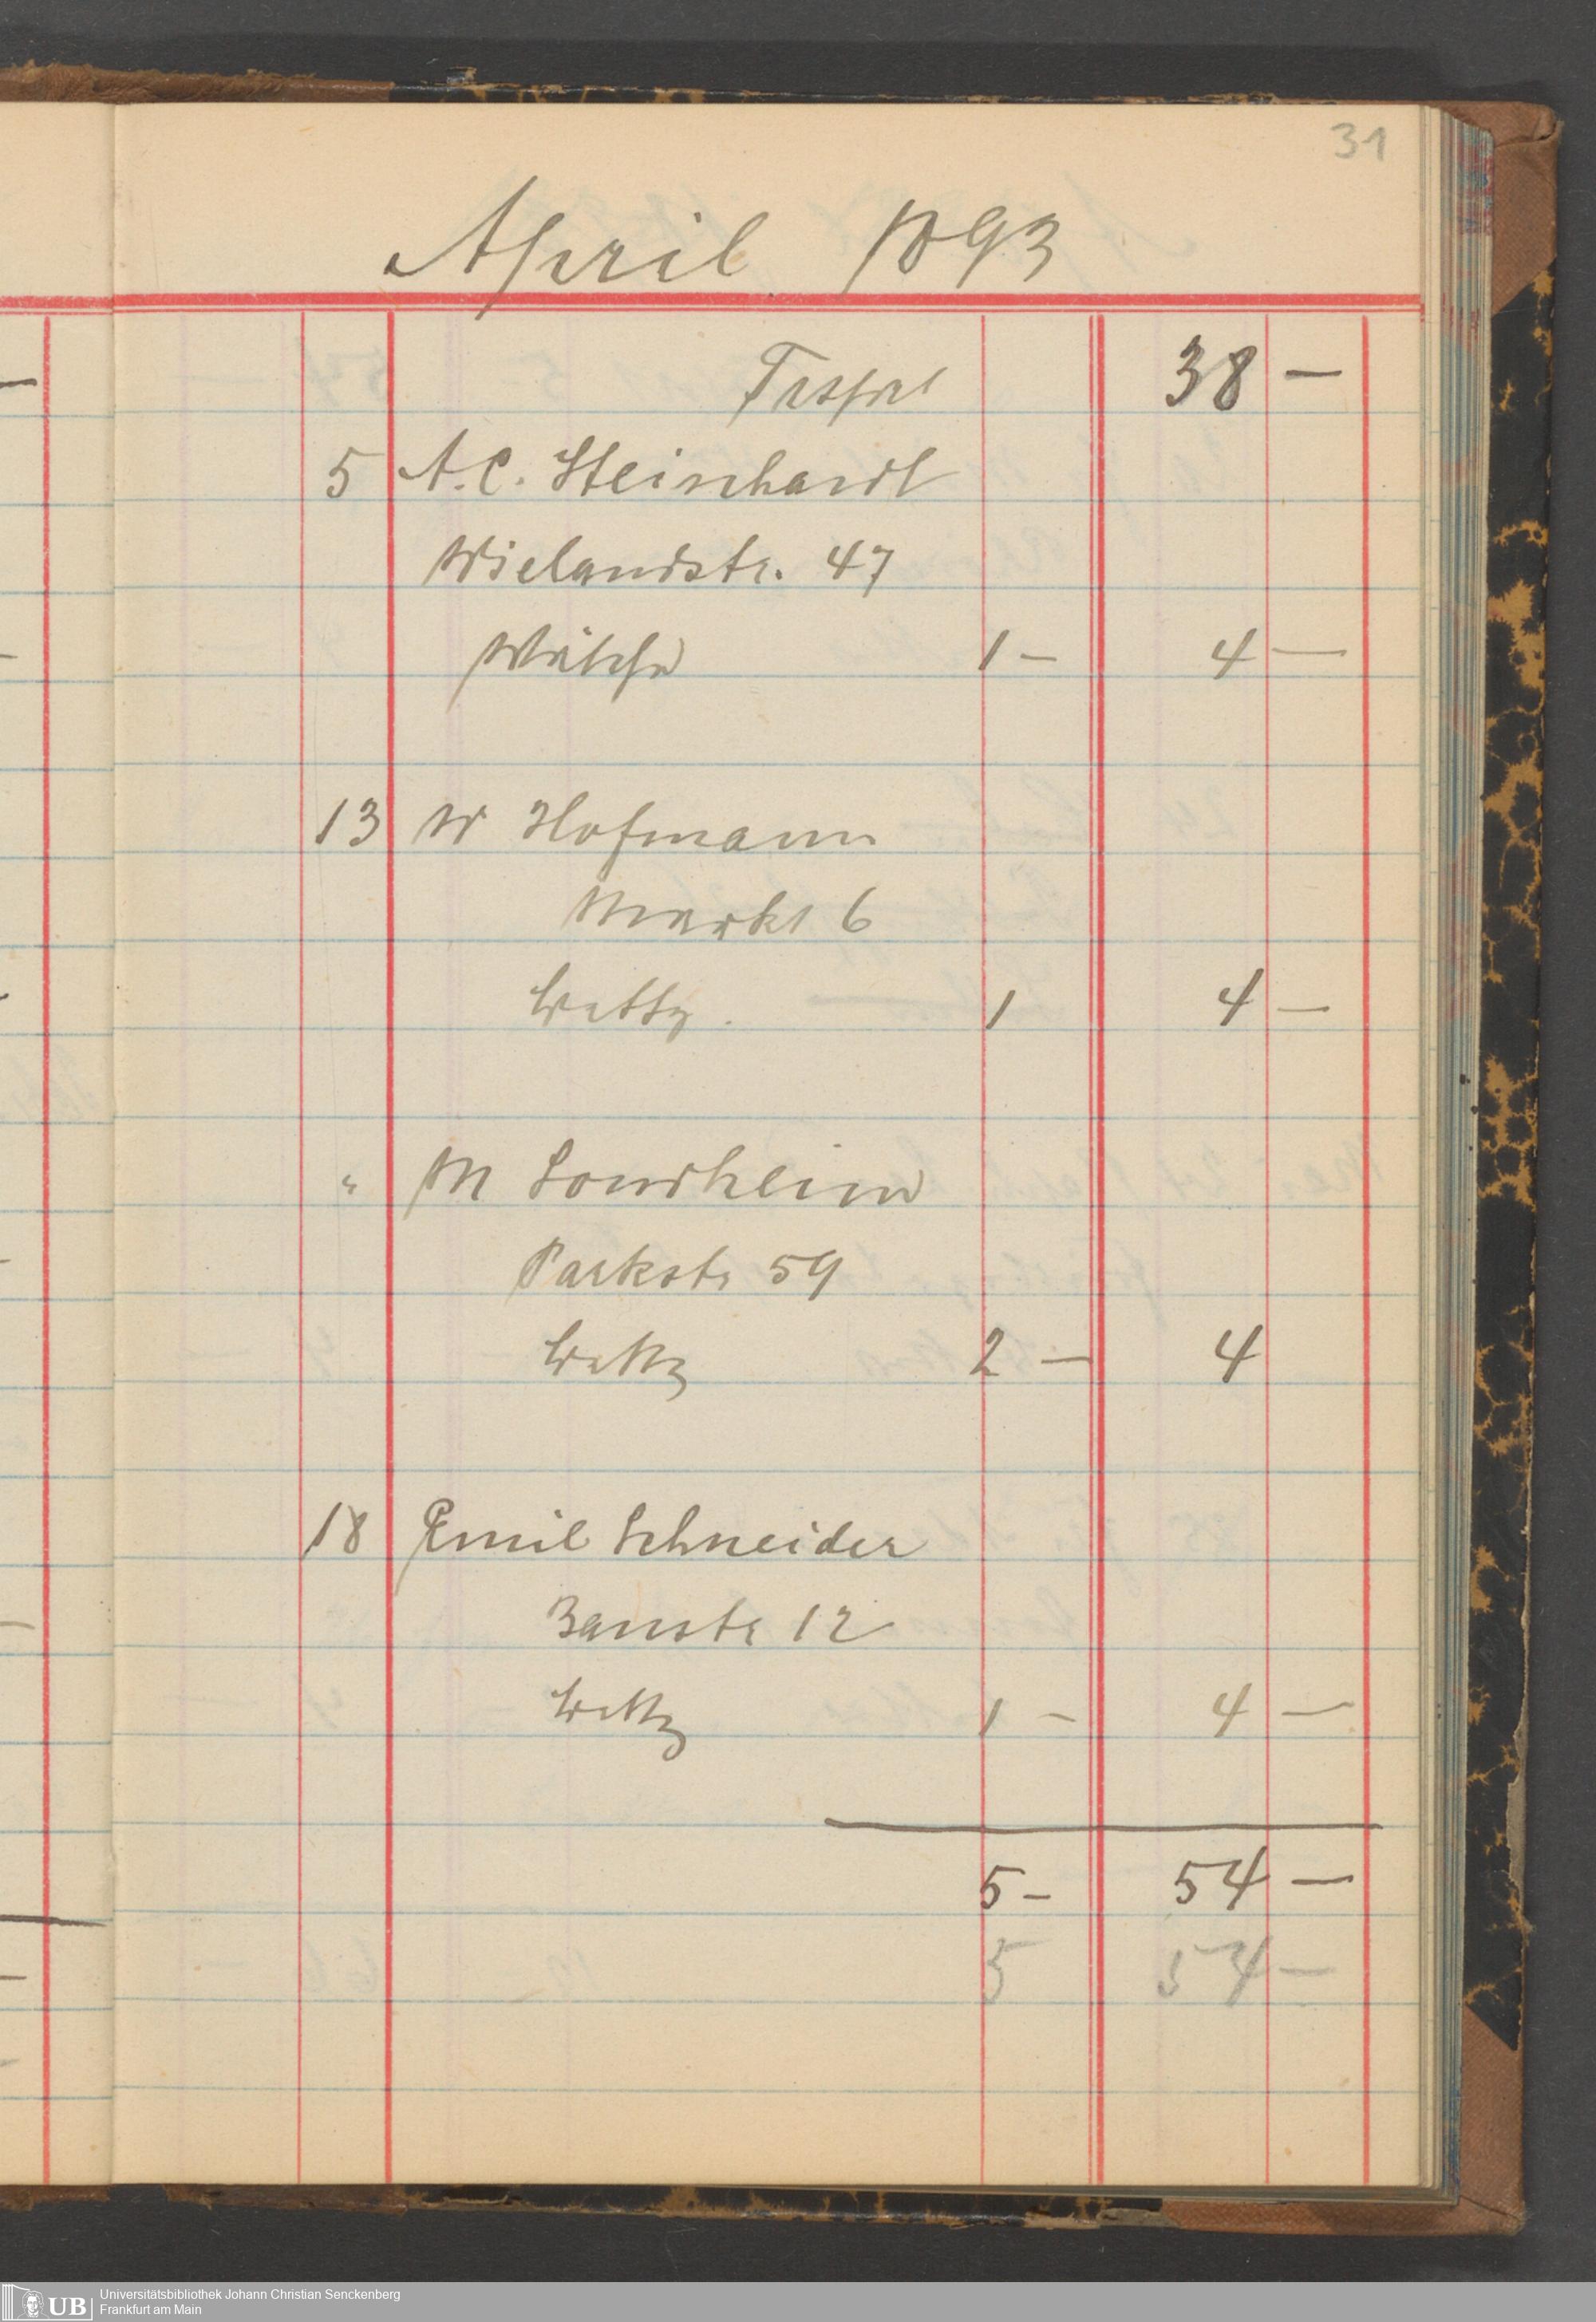 31
April 1893
38 —
5 A.C. Steinhardt
Wielandstr. 47
Wäsche 1 — 4 —
13 W Hofmann
Markt 6
1 4 —
" M Sondheim
Parkstr 59
2 — 4
18 Emil Schneider
12
1 — 4 —
5 — 54 —
5 54 —
UB Universitätsbibliothek Johann Christian Senckenberg
Frankfurt am Main